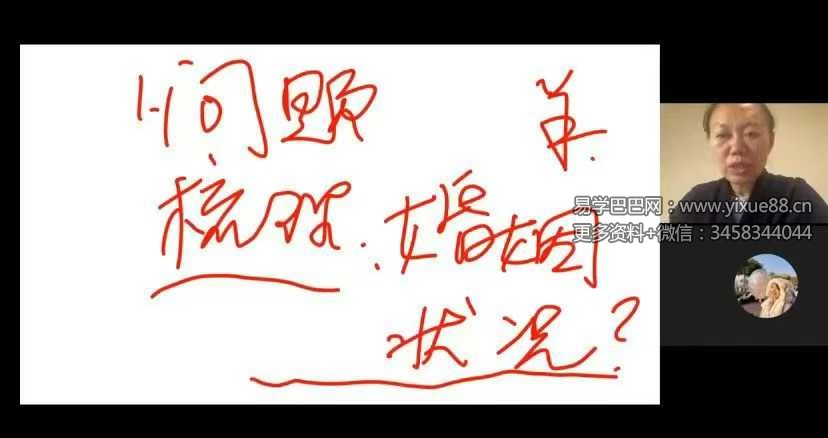 问题
梳理.婚姻
状况?
易学巴巴网：www.yixue88.cn
更多资料+微信：3458344044